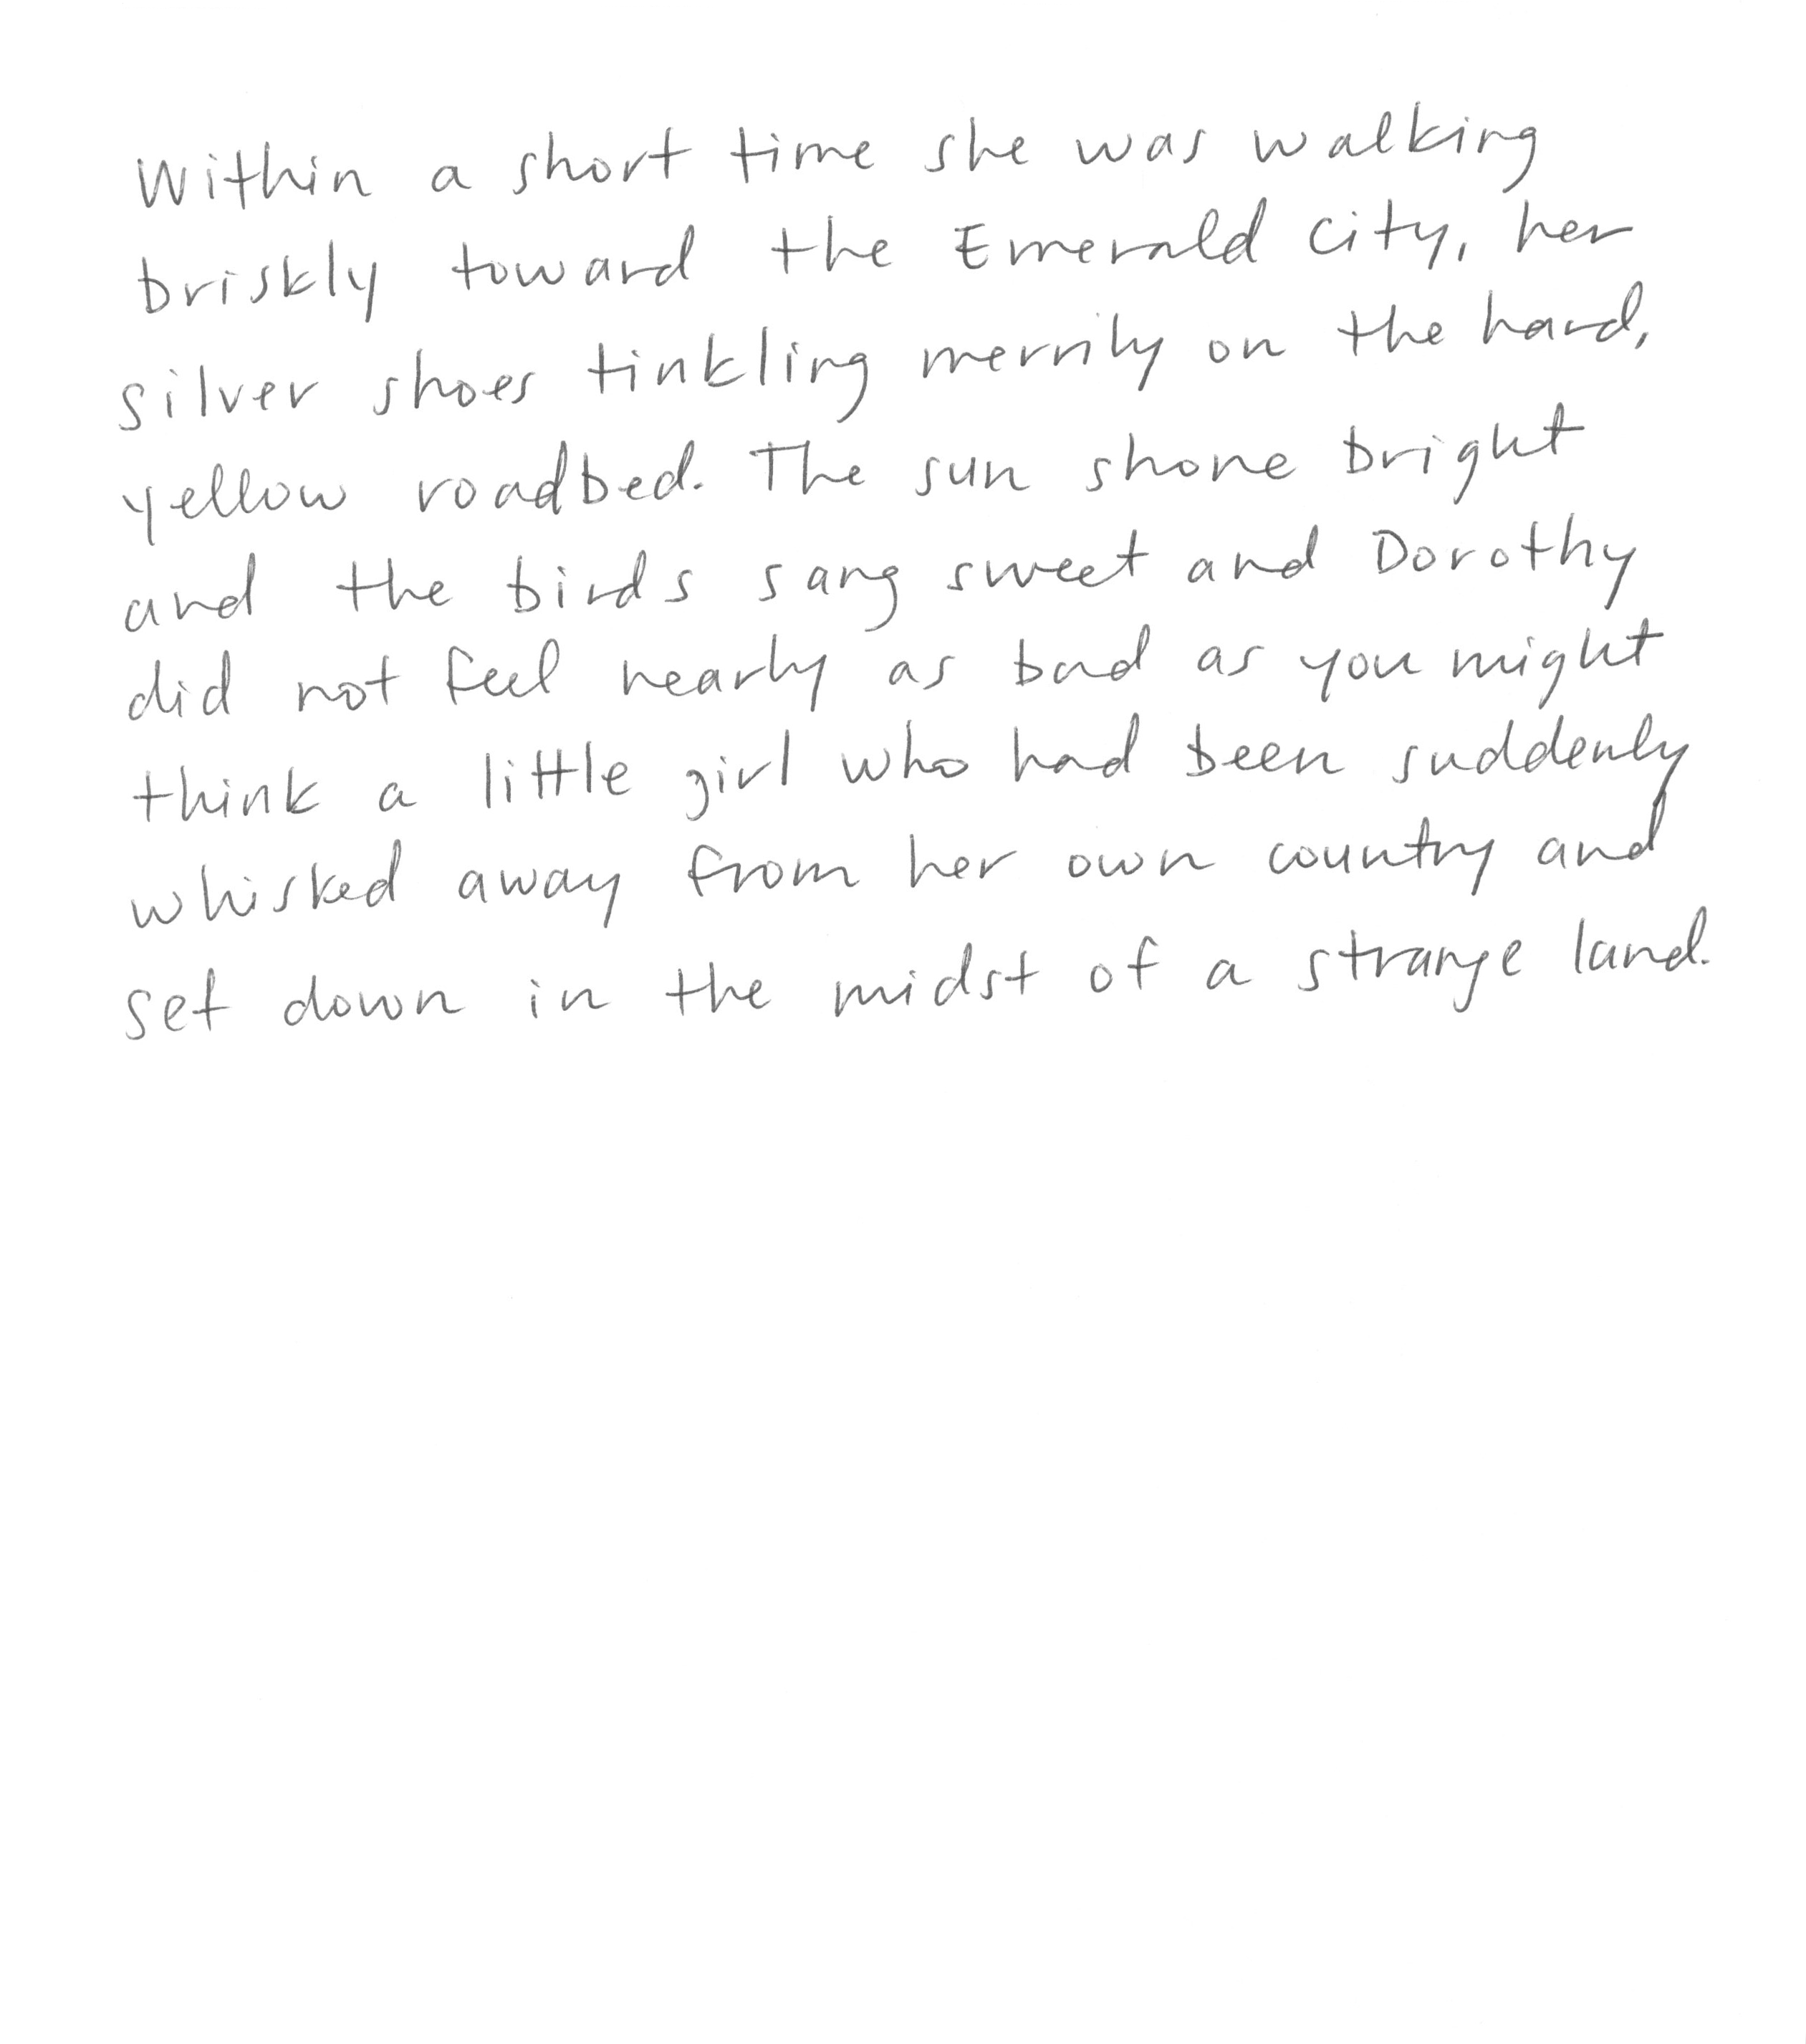 Within a short time she was walking
briskly toward the Emerald City, her
silver shoes tinkling merrily on the hard,
yellow roadbed. The sun shone bright
and the birds sang sweet and Dorothy
did not feel nearly as bad as you might
think a little girl who had been suddenly
whisked away from her own country and
set down in the midst of a strange land.